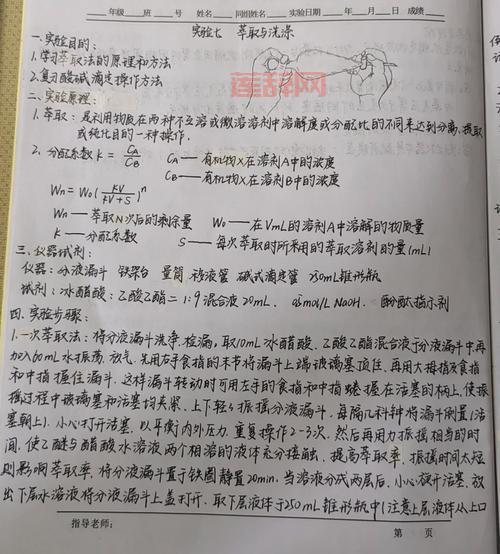 年级 班 号 姓名 同组姓名 实验日期 年 月 日 成绩
实验七 萃取与洗涤
一.实验目的:
1.学习萃取法的原理和方法
2.复习酸碱滴定操作方法
莲辞网
二.实验原理:
1.萃取:是利用物质在两种不互溶或微溶溶剂中溶解度或分配比的不同来达到分离、提取
或纯化目的一种操作.
2.分配系数K = CA/CB CA—有机物X在溶剂A中的浓度
CB—有机物X在溶剂B中的浓度
Wn = W0(KV/KV+S)^n
Wn — 萃取N次后的剩余量 W0 — 在VmL的溶剂A中溶解的物质量
K — 分配系数 S — 每次萃取时所采用的萃取溶剂的量(mL)
三.仪器试剂:
仪器:分液漏斗 铁架台 量筒 移液管 碱式滴定管 250ml锥形瓶
试剂:冰醋酸:乙酸乙酯=1:9混合液20mL. mol/L NaOH. 酚酞指示剂
四.实验步骤:
1.一次萃取法:将分液漏斗洗净.检漏,取10mL冰醋酸、乙酸乙酯混合液于分液漏斗中.再
加入60mL水振荡.放气.先用右手食指的末节将漏斗上端玻璃塞顶住.再用大拇指及食指
和中指握住漏斗.这样漏斗转动时可用左手的食指和中指蜷握在活塞的柄上,使振
摇过程中玻璃塞和活塞均夹紧.上下轻轻振摇分液漏斗.每隔几秒钟将漏斗倒置(活
塞朝上).小心打开活塞.以平衡内外压力.重复操作2-3次.然后再用力振摇相当的时
间.使乙醚与醋酸水溶液两个相溶的液体充分接触.提高萃取率.振摇时间太短
则影响萃取率.将分液漏斗置于铁圈静置20min.当溶液分成两层后.小心旋开活塞.放
出下层水溶液将分液漏斗上盖打开.取下层液体于250mL锥形瓶中(注意上层液体从上口
指导老师: 第 页